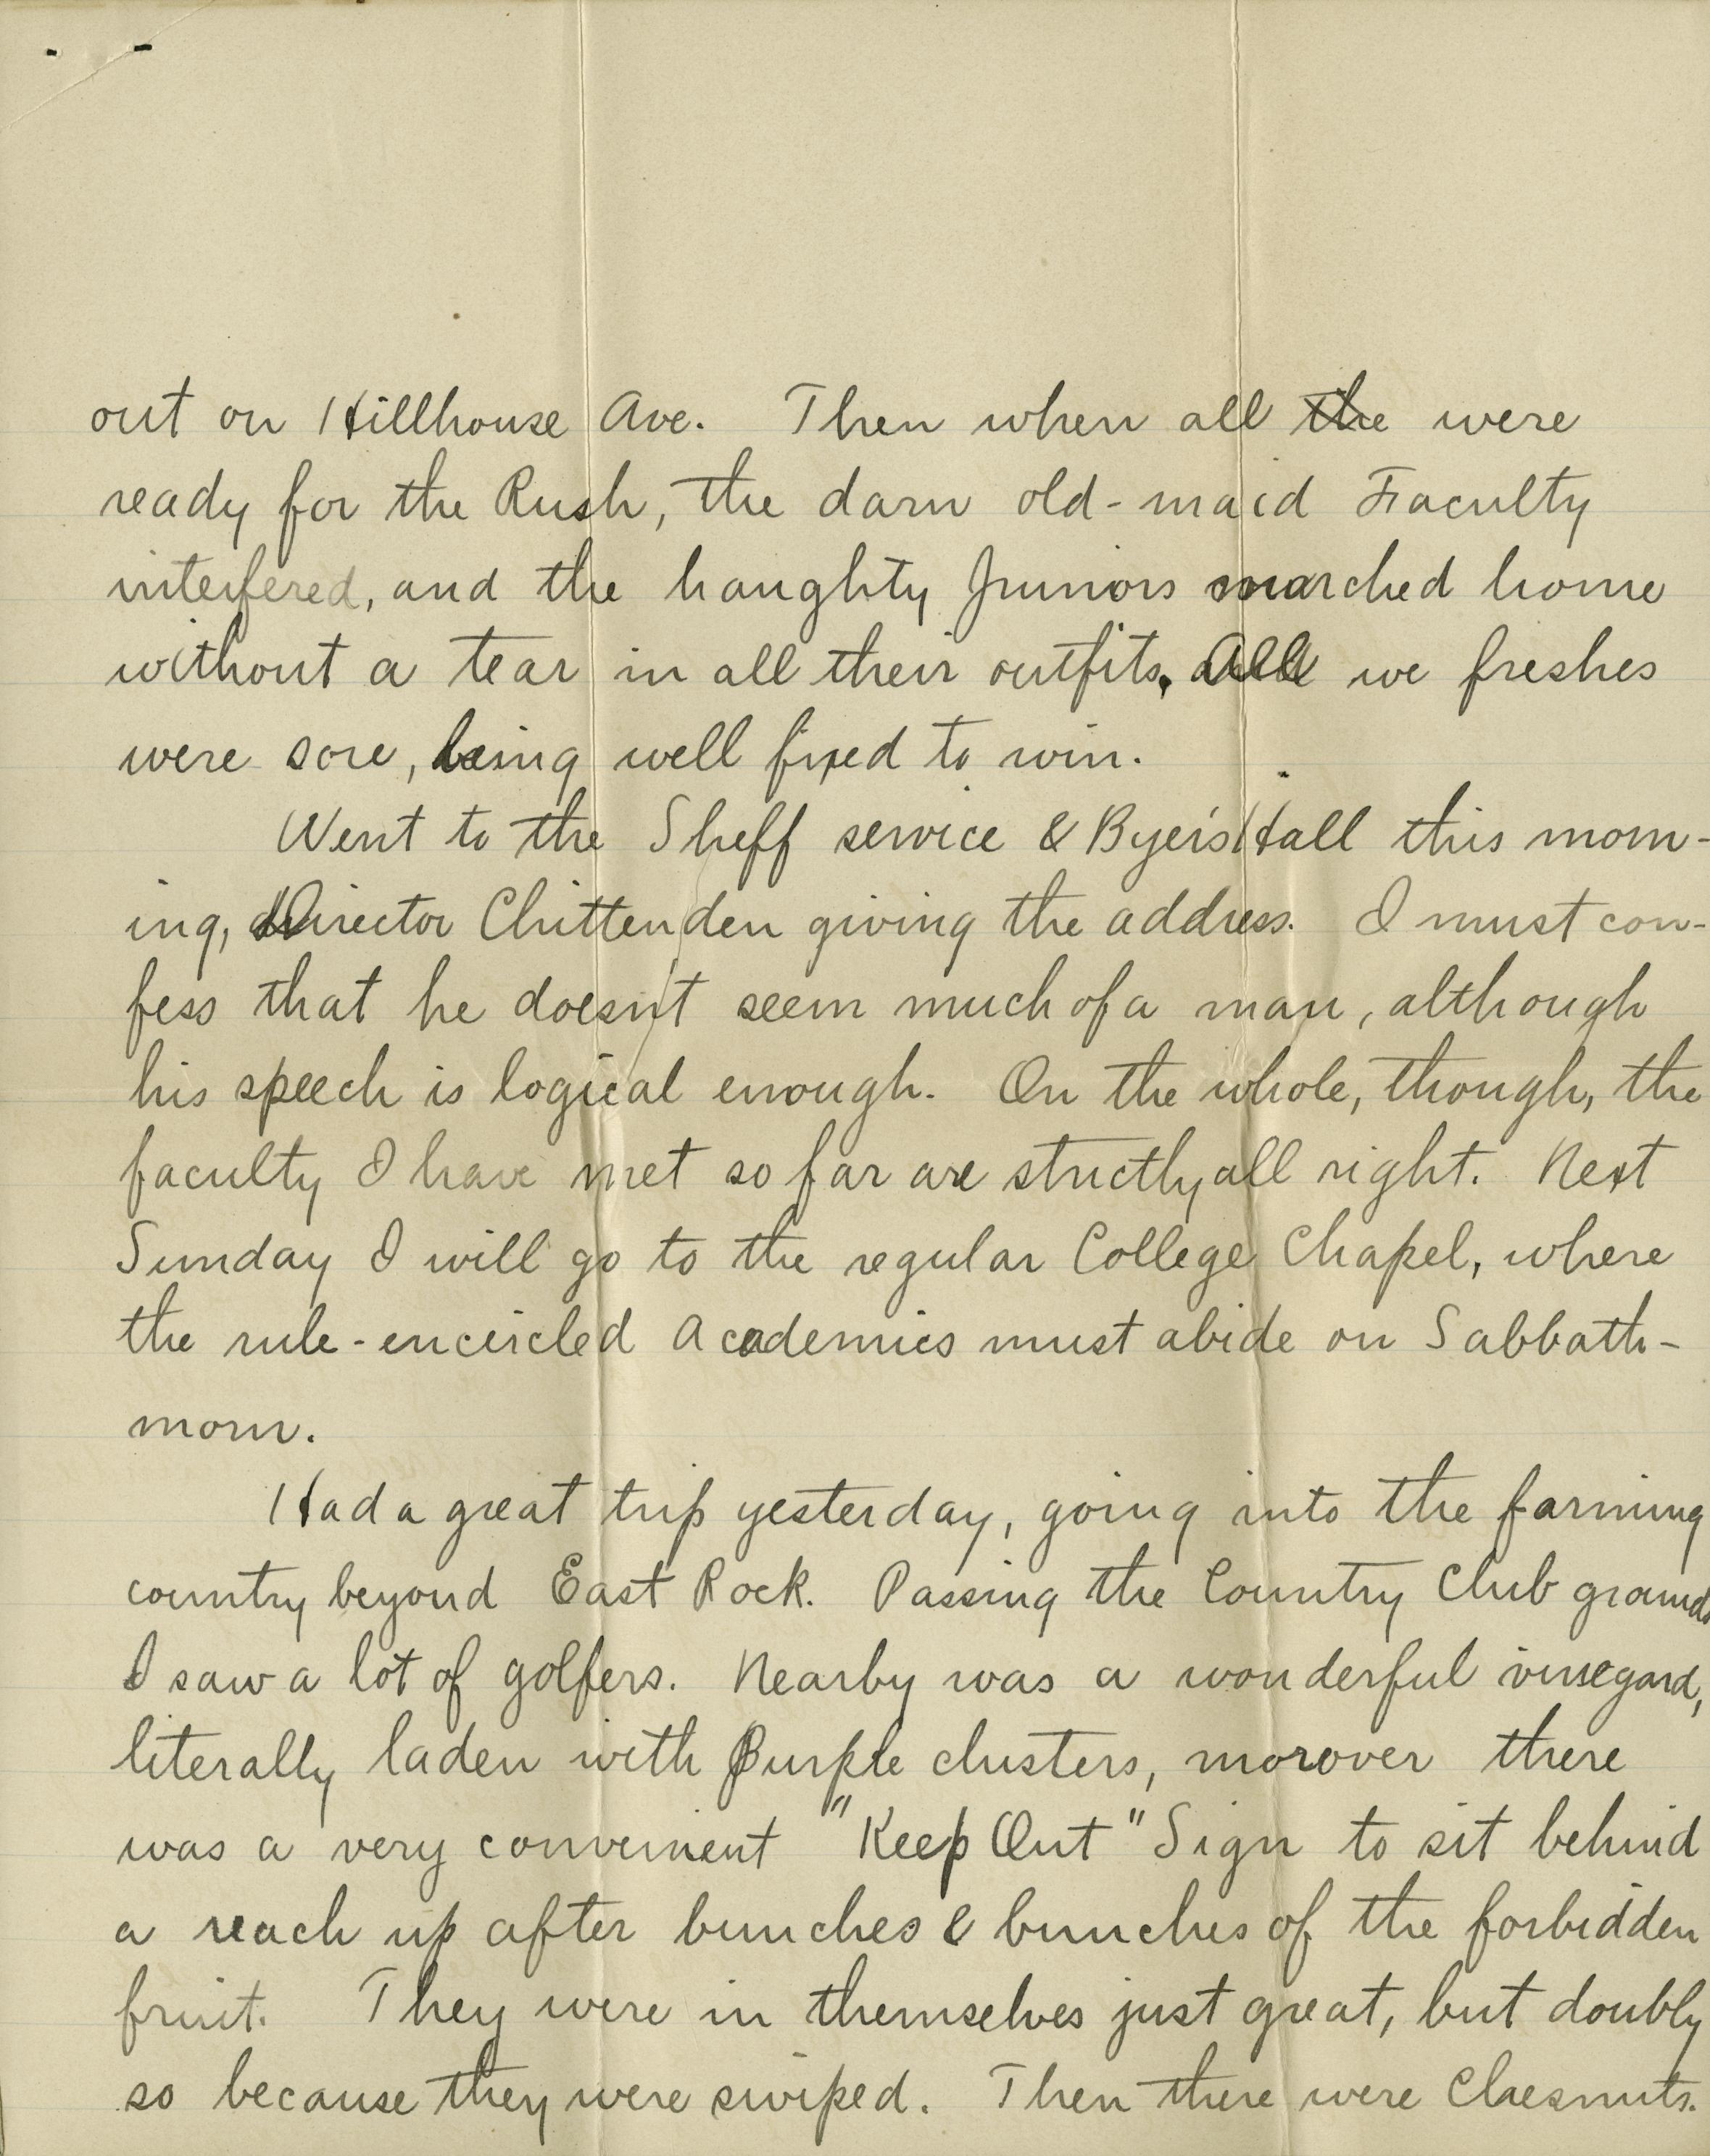 out on Hillhouse Ave. Then when all the were
ready for the Rush, the darn old-maid Faculty
interfered, and the haughty Juniors marched home
without a tear in all their outfits. All we freshes
were sore, being well fixed to win.
Went to the Sheff service & Byer's Hall this morn-
ing, Director Chittenden giving the address. I must con-
fess that he doesn't seem much of a man, although
his speech is logical enough. On the whole, though, the
faculty I have met so far are strictly all right. Next
Sunday I will go to the regular College Chapel, where
the rule-encircled Academics must abide on Sabbath-
morn.
Had a great trip yesterday, going into the farming
country beyond East Rock. Passing the Country Club grounds
I saw a lot of golfers. Nearby was a wonderful vineyard,
literally laden with Purple clusters, morover there
was a very convenient "Keep Out" Sign to sit behind
a reach up after bunches & bunches of the forbidden
fruit. They were in themselves just great, but doubly
so because they were swiped. Then there were Chesnuts.